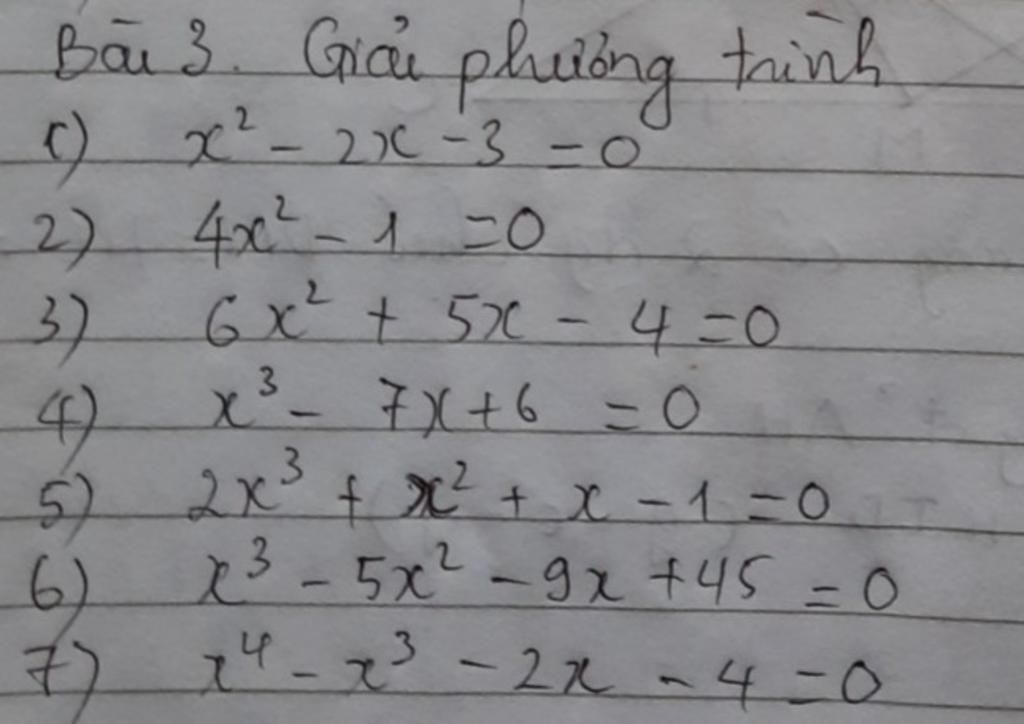 Bài 3. Giải phương trình
1) x² - 2x - 3 = 0
2) 4x² - 1 = 0
3) 6x² + 5x - 4 = 0
4) x³ - 7x + 6 = 0
5) 2x³ + x² + x - 1 = 0
6) x³ - 5x² - 9x + 45 = 0
7) x⁴ - x³ - 2x - 4 = 0